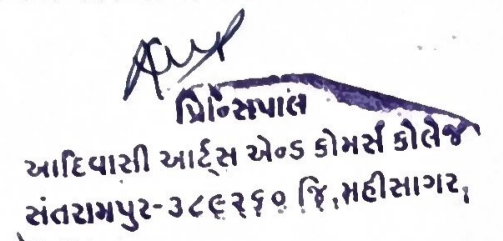 પ્રિન્સિપાલ
આદિવાસી આર્ટ્સ એન્ડ કોમર્સ કોલેજ
સંતરામપુર-૩૮૯૨૬૦ જિ.મહીસાગર.